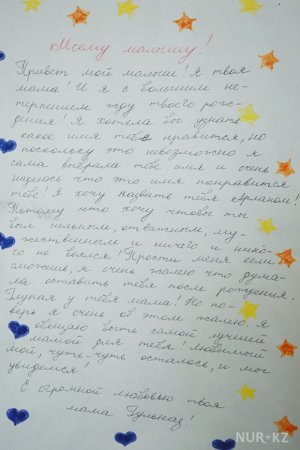 Моему малышу!
Привет мой малыш! Я твоя
мама! И я с большим не-
терпением жду твоего рож-
дения! Я хотела бы узнать
какое имя тебе нравится, но
поскольку это невозможно я
сама выбрала тебе имя и очень
надеюсь что это имя понравится
тебе! Я хочу назвать тебя Арманом!
Потому что хочу чтобы ты
был сильным, отважным, му-
жественным и ничего и нико-
го не боялся! Прости меня если
сможешь, я очень жалею что дума-
ла оставить тебя после рождения.
Глупая у тебя мама! Но по-
верь я очень об этом жалею. Я
обещаю быть самой лучшей
мамой для тебя! Любимый
мой, чуть-чуть осталось, и мы
увидимся!
С огромной любовью твоя
мама Гульназ!
NUR.KZ